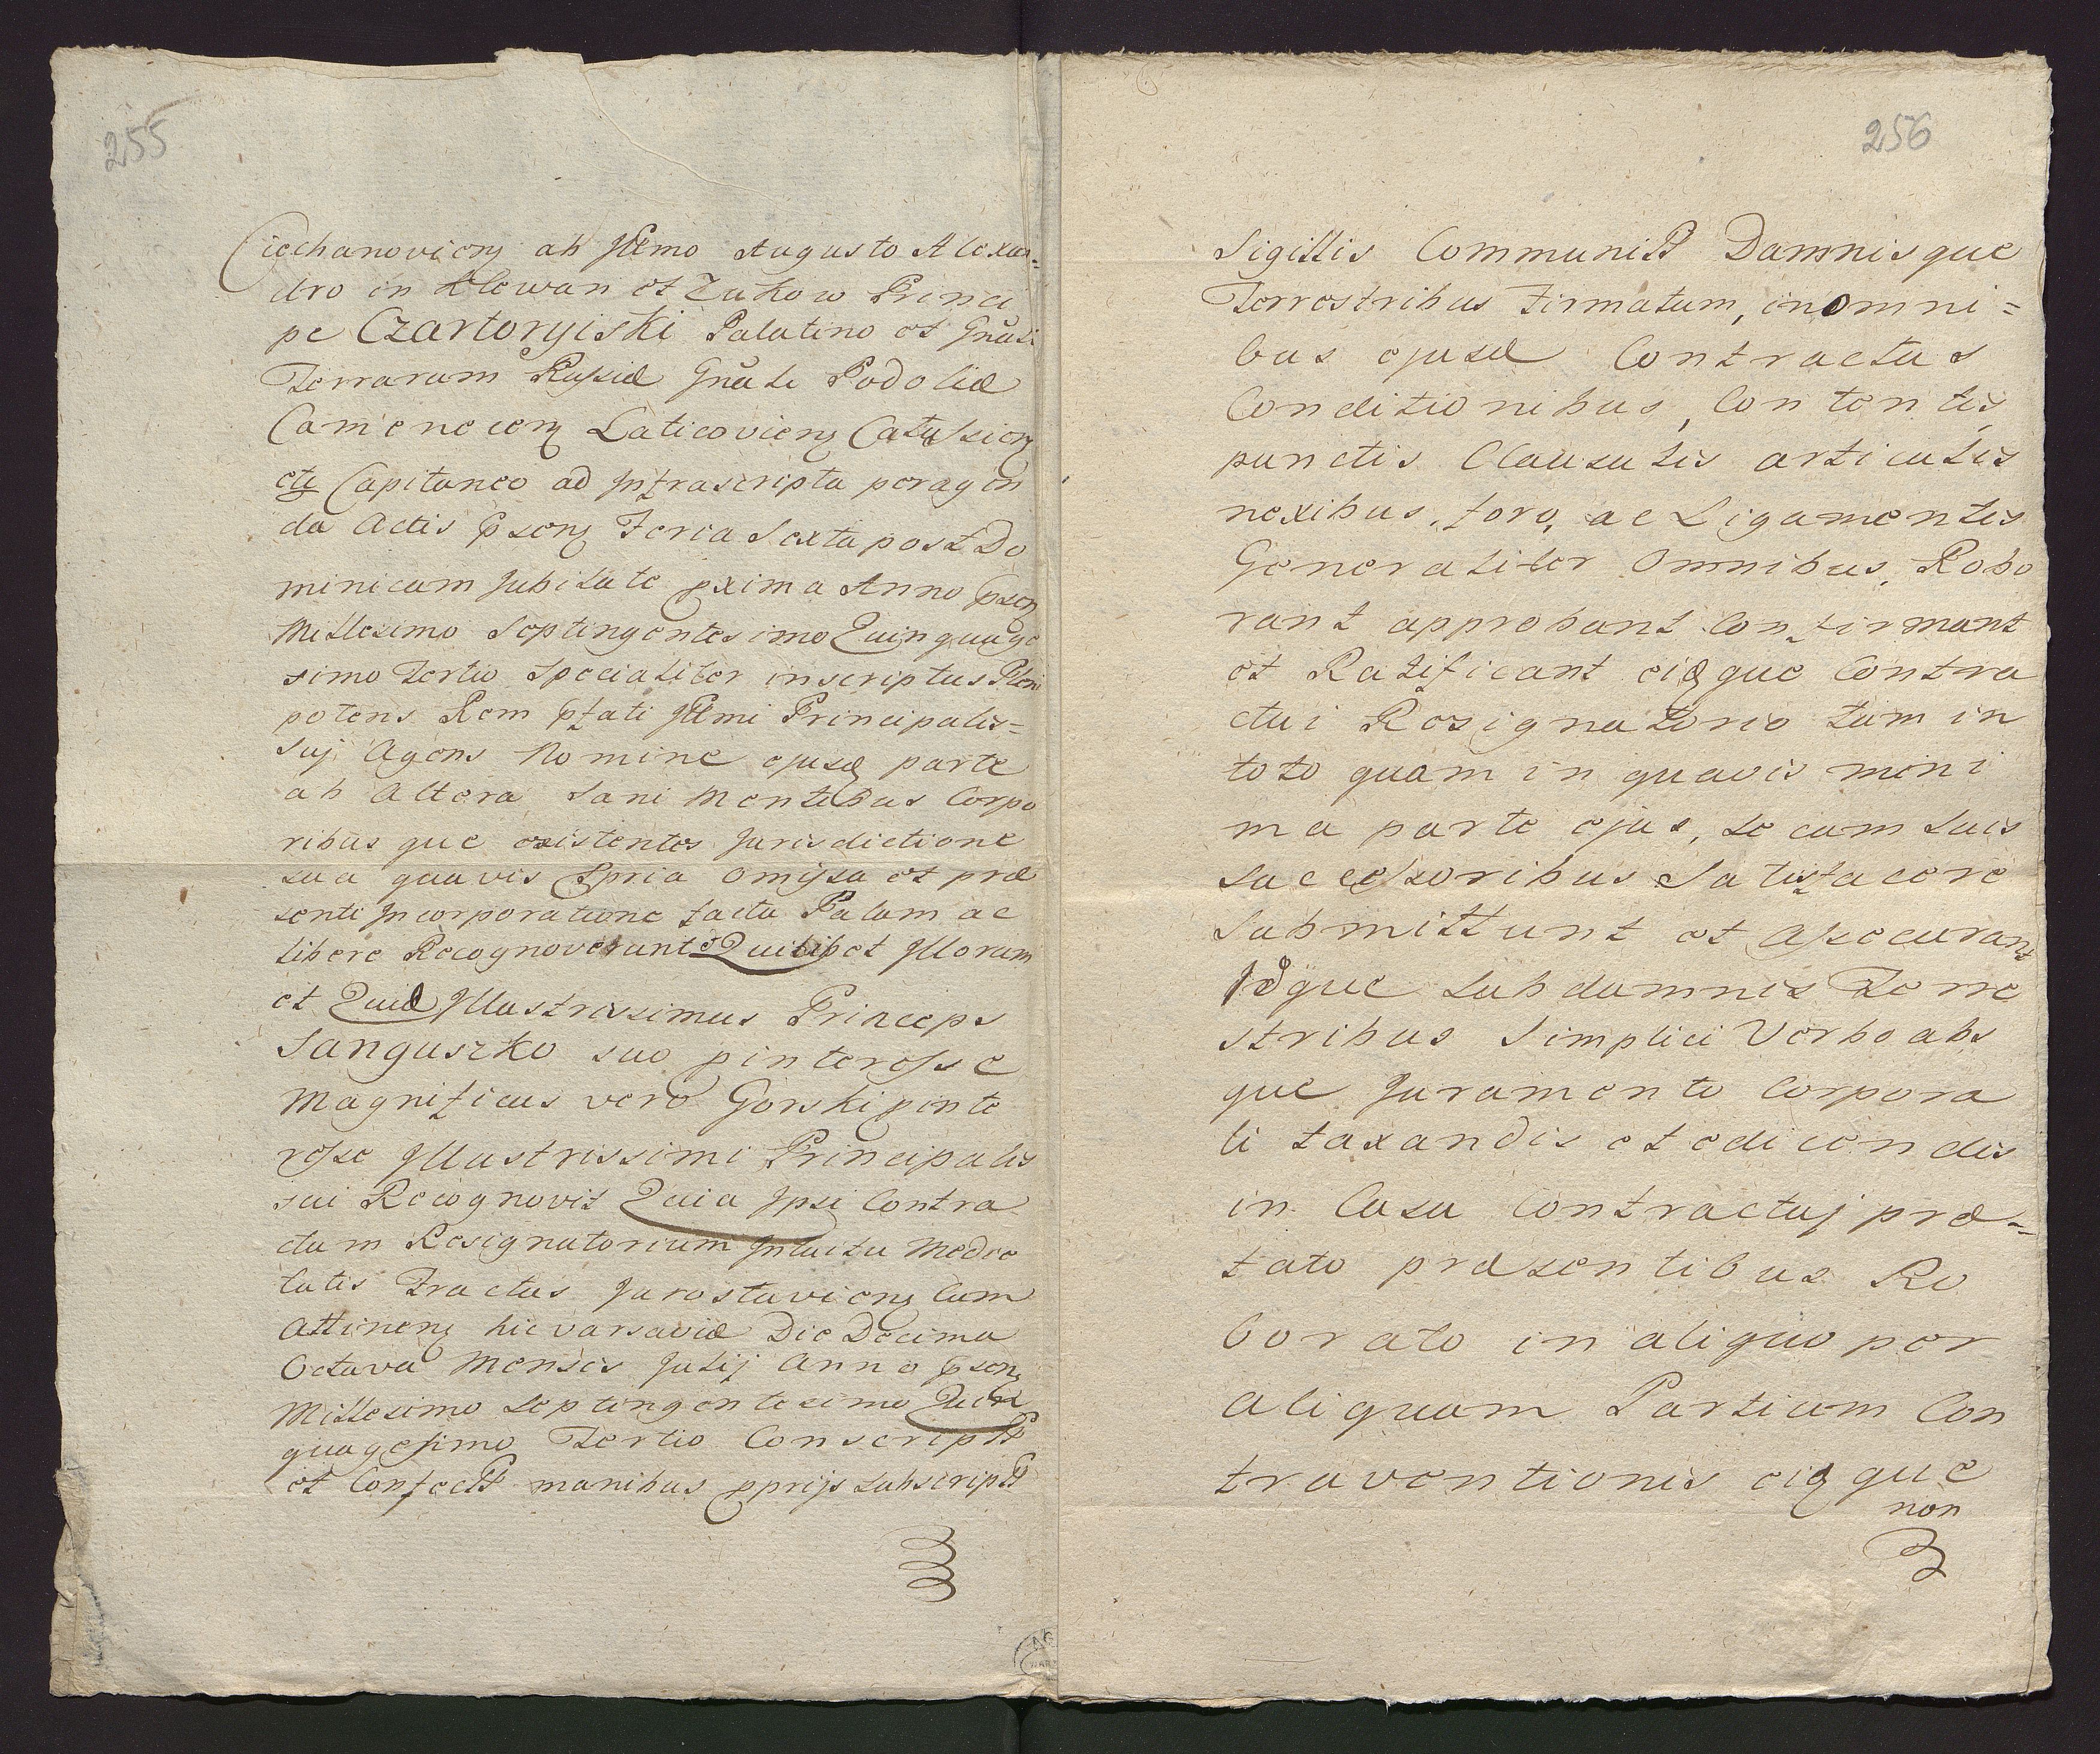 255
Ciechanovieñ ab Illmo Augusto Alexan=
dro in Klewan et Zukow Princi
pe Czartoryiski Palatino et Gnãli
Terrarum Russiæ Gnãli Podoliæ
Camenecen Laticovien Catussien
etc Capitaneo ad Infrascripta peragen
da Actis psen Feria Sexta post Do
minicam Jubilate pxima Anno psen
Millesimo Septingentesimo Quinquage
simo Tertio Specialiter inscriptus Pleni
potens Rem pfati Illmi Principalis=
suj Agens Nomine ejusd parte
ab Altera Sani Mentibus Corpo
ribus que existentes Jurisdictione
sua quavis Ppria Omissa et præ
senti Incorporatione facta Palam ac
libere Recognoverunt et Quilibet Illorum
et Quid Illustrissimus Princeps
Sanguszko suo pinteresse
Magnificus vero Gorski pinte
resse Illustrissimi Principalis
sui Recognovit Quia Ipsi Contra
ctum Resignatorium Intuitu Medie
tatis Tractus Jaroslavien Cum
Attinen hic Varsaviæ Die Decima
Octava Mensis Julij Anno psen
Millesimo Septingentesimo Quin
quagesimo Tertio Conscript
et Confect manibus pprijs subscript
256
Sigillis Communit Damnisque
Terrestribus Firmatum, in omni=
bus ejusd Contractus
Conditionibus, Contentis,
punctis Clausulis articulis
nexibus, foro, ac Ligamentis
Generaliter Omnibus, Robo
rant approbant Confirmant
et Ratificant eidque Contra
ctui Resignatorio tam in
toto quam in quavis mini
ma parte ejus, se cum suis
successoribus Satisfacere
Submittunt et Assecurant
Idque sub damnis Terre
stribus Simplici Verbo abs
que Juramento Corpora
li taxandis et edicendis
in Casu Contractuj præ=
fato præsentibus Ro
borato in aliquo per
aliquam Partium Con
traventionis eidque
non